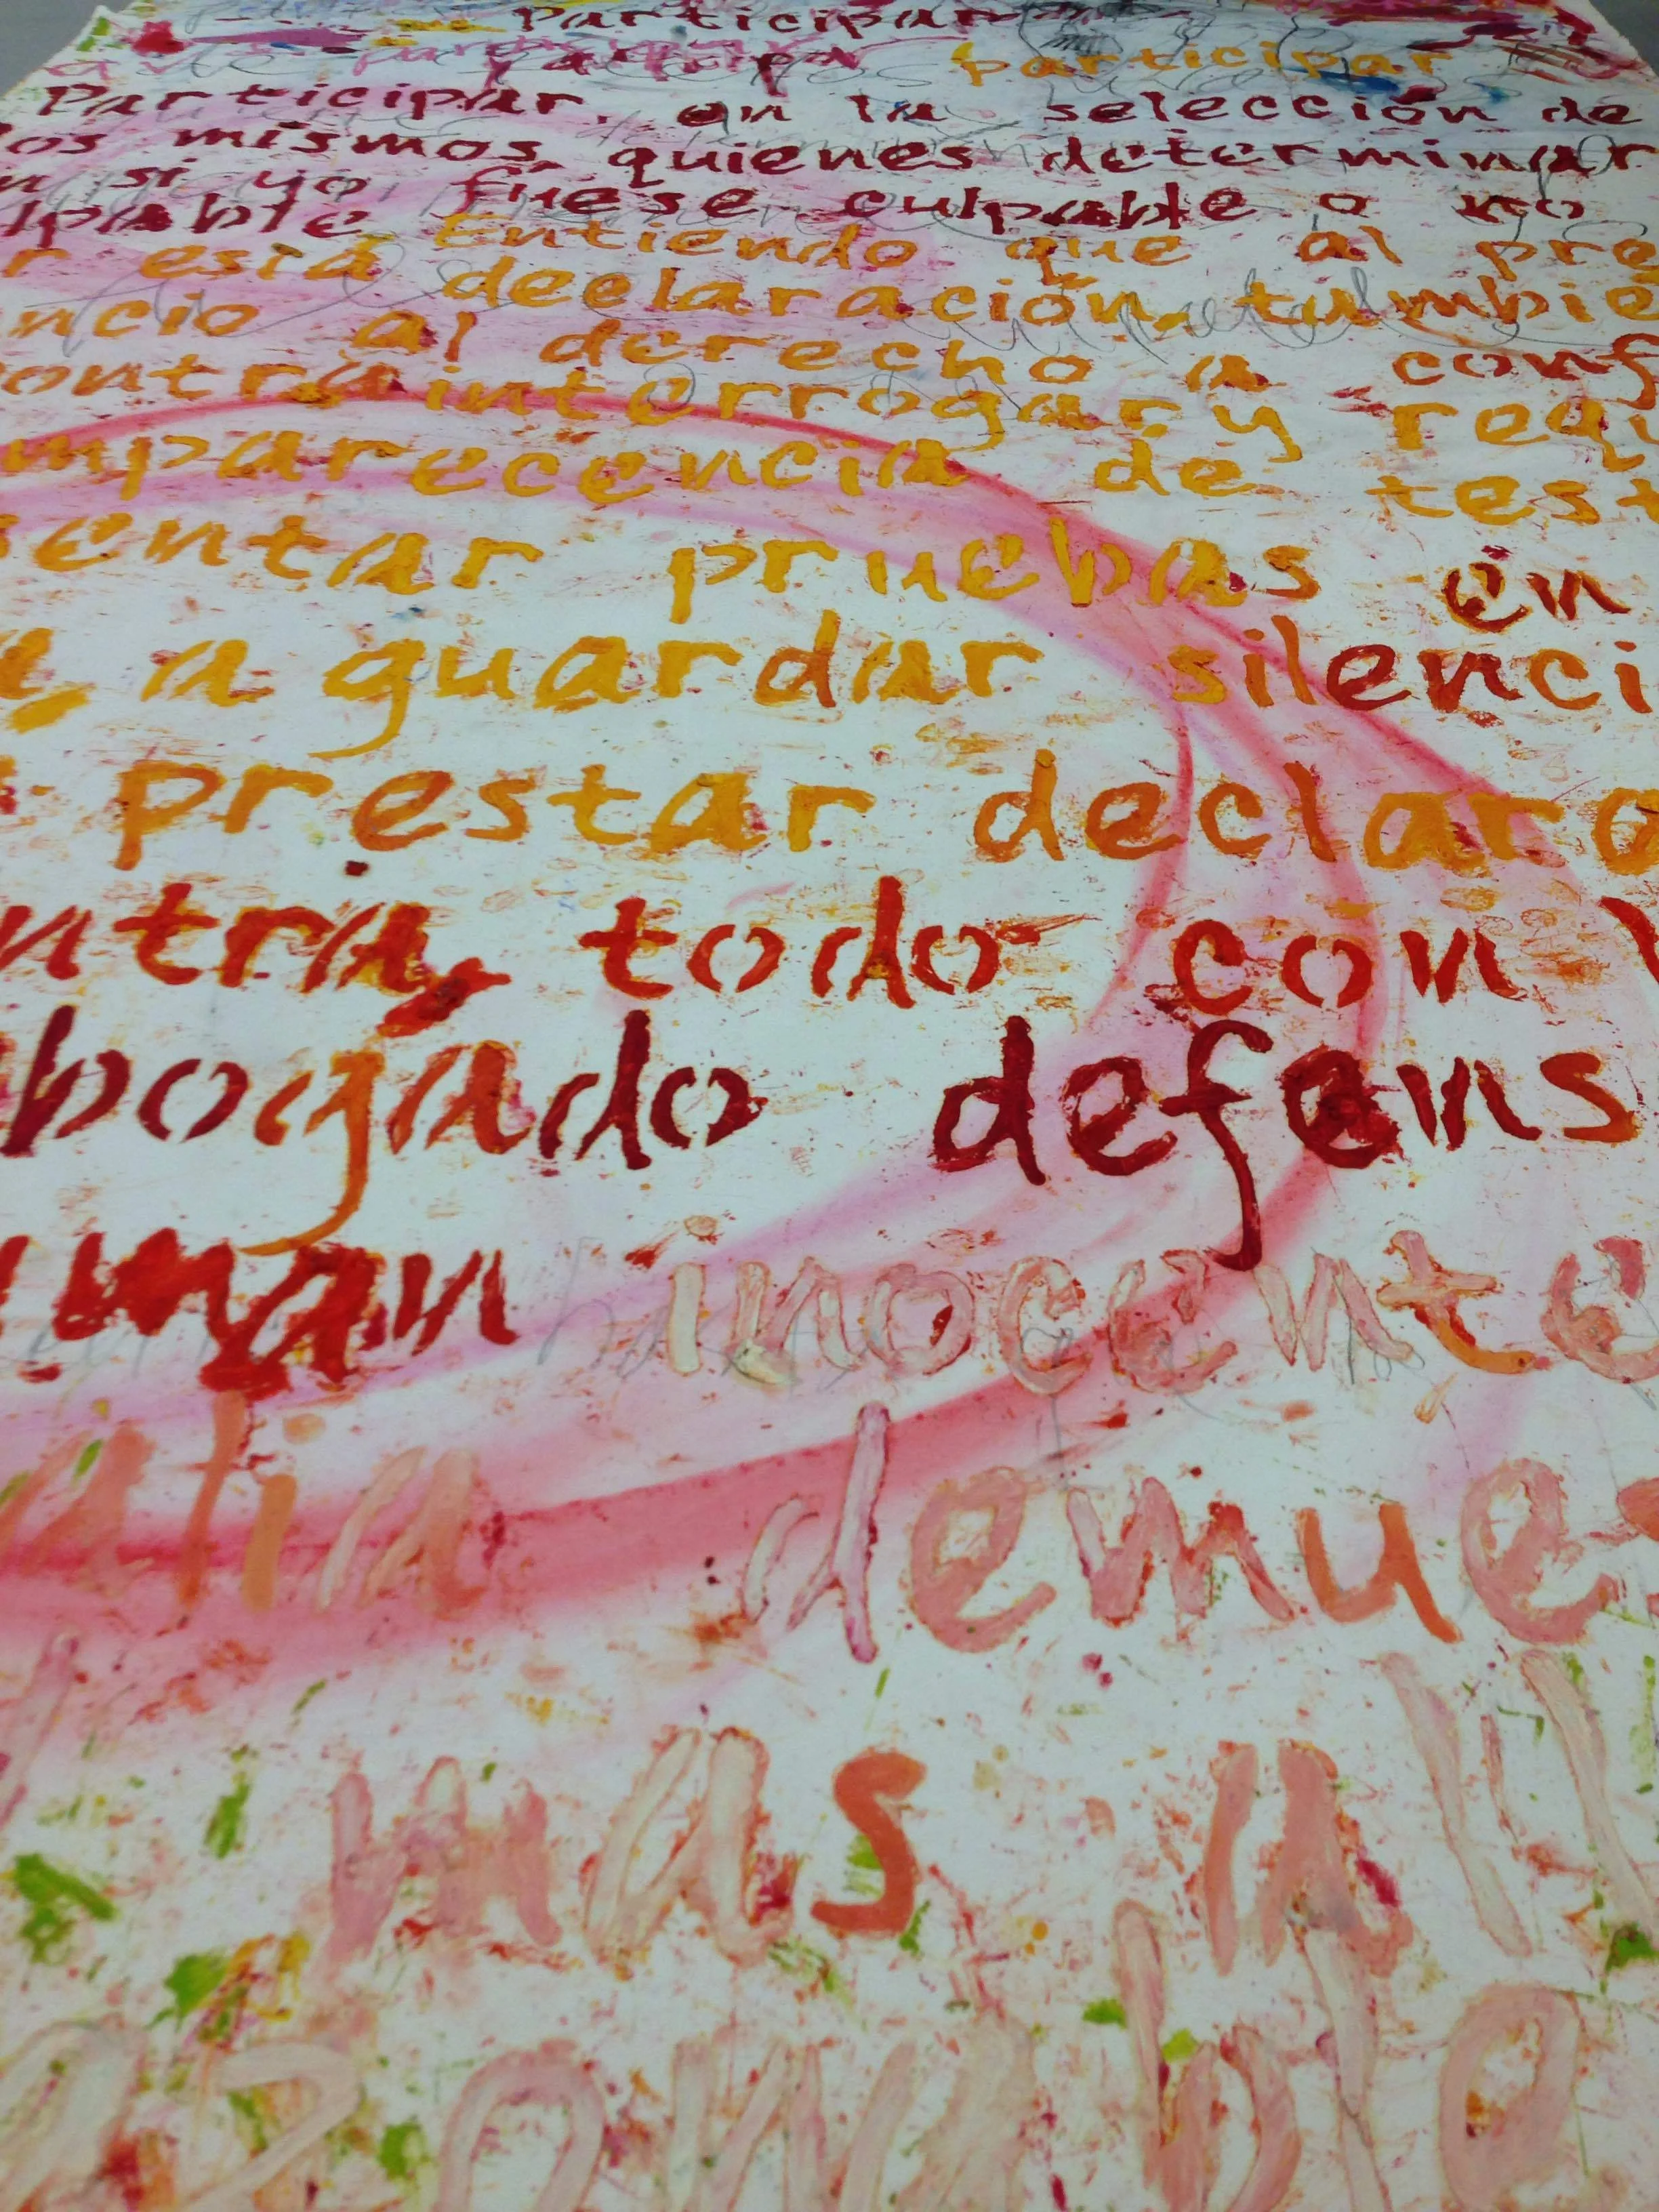 Participar
participar
Participar en la selección de
os mismos, quienes determinar
n si yo fuese culpable o no
lpable Entiendo que al pre
r esta declaración, tambie
ncio al derecho a conf
ontra interrogar y requ
mparecencia de test
entar pruebas en
a guardar silenci
prestar declara
ntra, todo con
bogado defens
uman inocente
alia demue
mas all
azonable